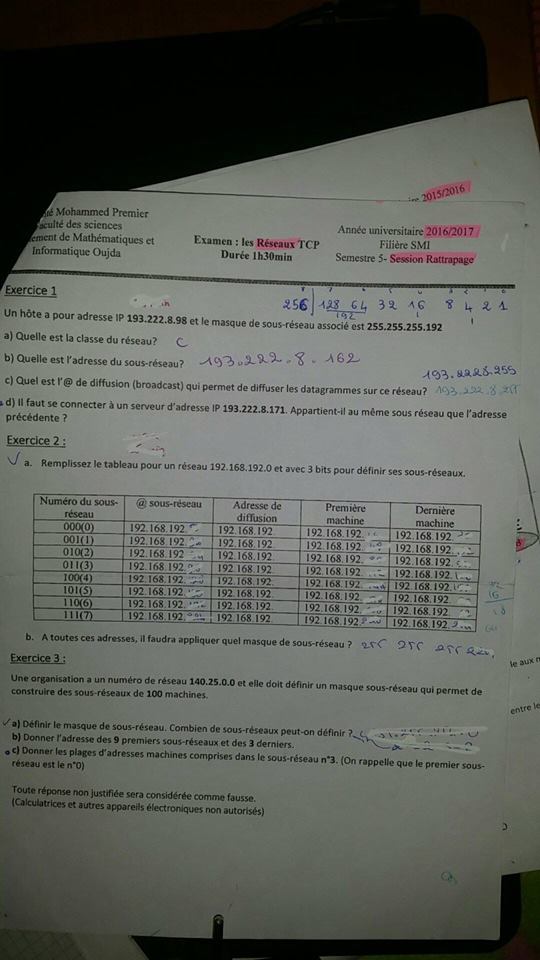 ire 2015/2016
té Mohammed Premier
aculté des sciences
ement de Mathématiques et
Informatique Oujda
Examen : les Réseaux TCP
Durée 1h30min
Année universitaire 2016/2017
Filière SMI
Semestre 5- Session Rattrapage
Exercice 1
256 128 64 32 16 8 4 2 1
192
Un hôte a pour adresse IP 193.222.8.98 et le masque de sous-réseau associé est 255.255.255.192
a) Quelle est la classe du réseau? C
b) Quelle est l'adresse du sous-réseau? 193.222.8.162
193.222.8.255
c) Quel est l'@ de diffusion (broadcast) qui permet de diffuser les datagrammes sur ce réseau? 193.222.8.
d) Il faut se connecter à un serveur d'adresse IP 193.222.8.171. Appartient-il au même sous réseau que l'adresse
précédente ?
Exercice 2 :
a. Remplissez le tableau pour un réseau 192.168.192.0 et avec 3 bits pour définir ses sous-réseaux.
Numéro du sous-réseau @ sous-réseau Adresse de diffusion Première machine Dernière machine
000(0) 192.168.192. 192.168.192. 192.168.192. 192.168.192.
001(1) 192.168.192. 192.168.192. 192.168.192. 192.168.192.
010(2) 192.168.192. 192.168.192. 192.168.192. 192.168.192.
011(3) 192.168.192. 192.168.192. 192.168.192. 192.168.192.
100(4) 192.168.192. 192.168.192. 192.168.192. 192.168.192.
101(5) 192.168.192. 192.168.192. 192.168.192. 192.168.192.
110(6) 192.168.192. 192.168.192. 192.168.192. 192.168.192.
111(7) 192.168.192. 192.168.192. 192.168.192. 192.168.192.
b. A toutes ces adresses, il faudra appliquer quel masque de sous-réseau ? 255 255 255
Exercice 3 :
Une organisation a un numéro de réseau 140.25.0.0 et elle doit définir un masque sous-réseau qui permet de
construire des sous-réseaux de 100 machines.
a) Définir le masque de sous-réseau. Combien de sous-réseaux peut-on définir ?
b) Donner l'adresse des 9 premiers sous-réseaux et des 3 derniers.
c) Donner les plages d'adresses machines comprises dans le sous-réseau n°3. (On rappelle que le premier sous-
réseau est le n°0)
Toute réponse non justifiée sera considérée comme fausse.
(Calculatrices et autres appareils électroniques non autorisés)
le aux
entre le